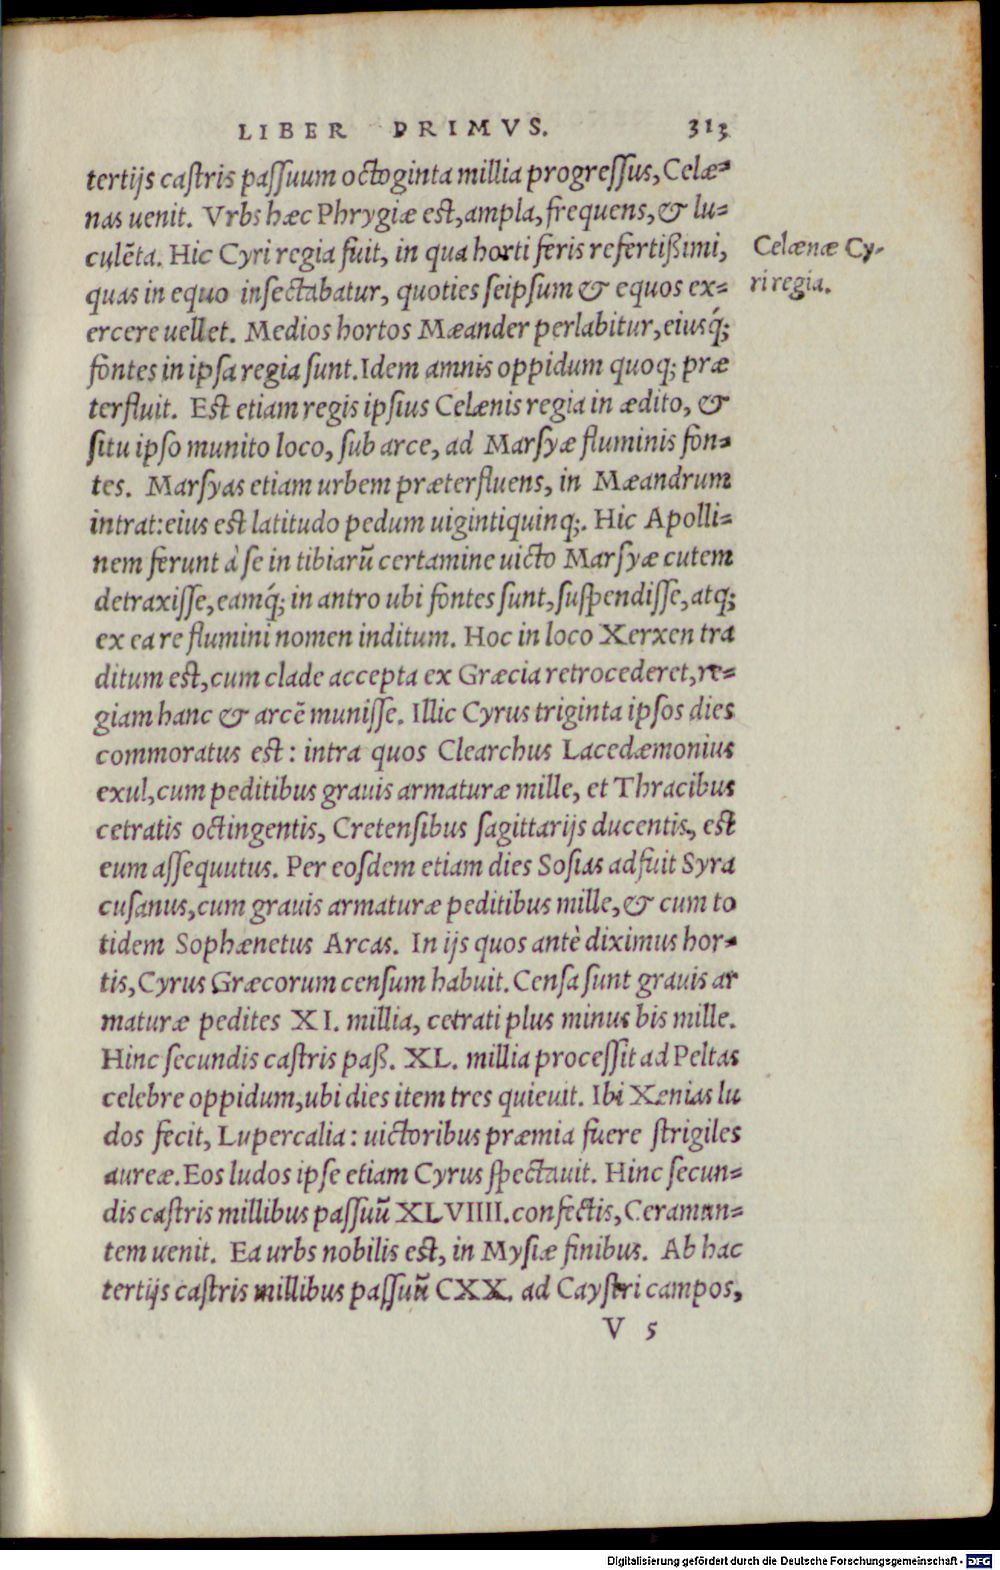 LIBER PRIMVS. 313
tertijs castris passuum octoginta millia progressus, Celæ=
nas uenit. Vrbs hæc Phrygiæ est, ampla, frequens, & lu=
culẽta. Hic Cyri regia fuit, in qua horti feris refertißimi,
Celænæ Cy-
quas in equo insectabatur, quoties seipsum & equos ex=
ri regia.
ercere uellet. Medios hortos Mæander perlabitur, eiusq́;
fontes in ipsa regia sunt. Idem amnis oppidum quoq; præ
terfluit. Est etiam regis ipsius Celænis regia in ædito, &
situ ipso munito loco, sub arce, ad Marsyæ fluminis fon=
tes. Marsyas etiam urbem præterfluens, in Mæandrum
intrat: eius est latitudo pedum uigintiquinq;. Hic Apolli=
nem ferunt à se in tibiarũ certamine uicto Marsyæ cutem
detraxisse, eamq́; in antro ubi fontes sunt, suspendisse, atq;
ex ea re flumini nomen inditum. Hoc in loco Xerxen tra
ditum est, cum clade accepta ex Græcia retrocederet, re=
giam hanc & arcẽ munisse. Illic Cyrus triginta ipsos dies
commoratus est: intra quos Clearchus Lacedæmonius
exul, cum peditibus grauis armaturæ mille, et Thracibus
cetratis octingentis, Cretensibus sagittarijs ducentis, est
eum assequutus. Per eosdem etiam dies Sosias adfuit Syra
cusanus, cum grauis armaturæ peditibus mille, & cum to
tidem Sophænetus Arcas. In ijs quos antè diximus hor=
tis, Cyrus Græcorum censum habuit. Censa sunt grauis ar
maturæ pedites XI. millia, cetrati plus minus bis mille.
Hinc secundis castris paß. XL. millia processit ad Peltas
celebre oppidum, ubi dies item tres quieuit. Ibi Xenias lu
dos fecit, Lupercalia: uictoribus præmia fuere strigiles
aureæ. Eos ludos ipse etiam Cyrus spectauit. Hinc secun=
dis castris millibus passuũ XLVIIII. confectis, Ceraman=
tem uenit. Ea urbs nobilis est, in Mysiæ finibus. Ab hac
tertijs castris millibus passuũ CXX. ad Caystri campos,
V 5
Digitalisierung gefördert durch die Deutsche Forschungsgemeinschaft - DFG